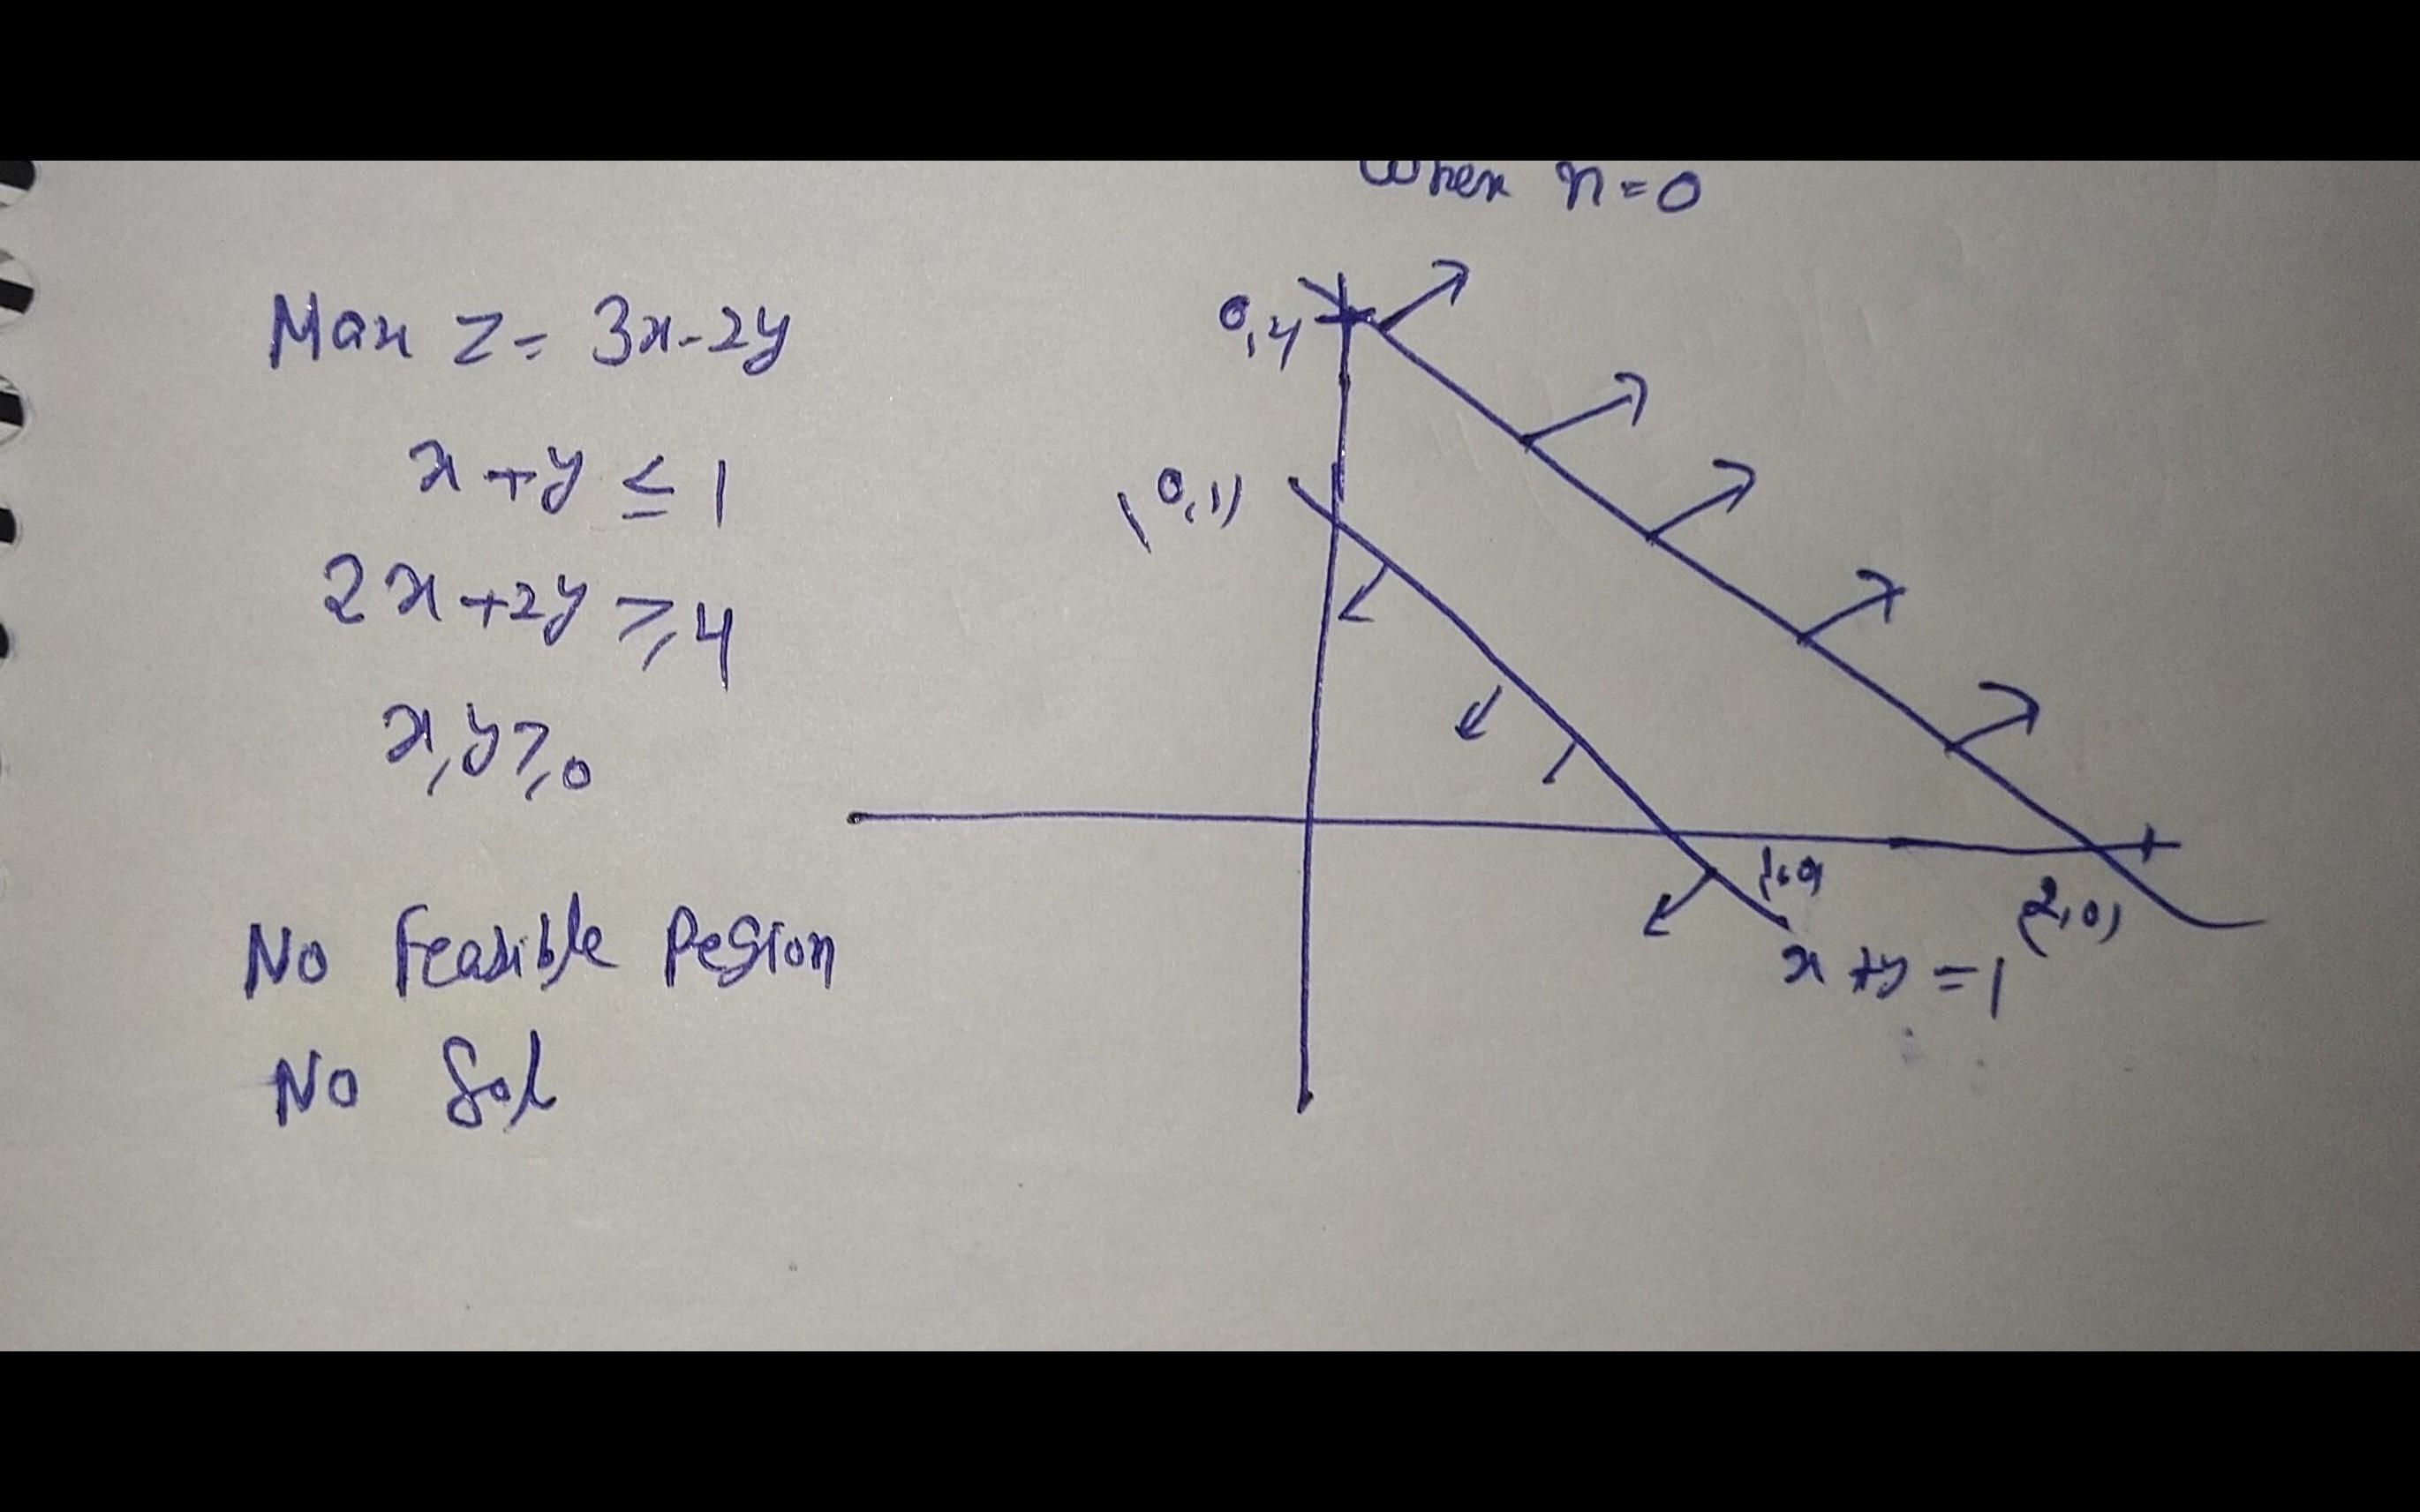 when n=0
Max Z = 3x-2y
x+y ≤ 1
2x+2y ≥ 4
x,y ≥ 0
No Feasible Region
No Sol
0,4
(0,1)
1,0
(2,0)
x+y=1